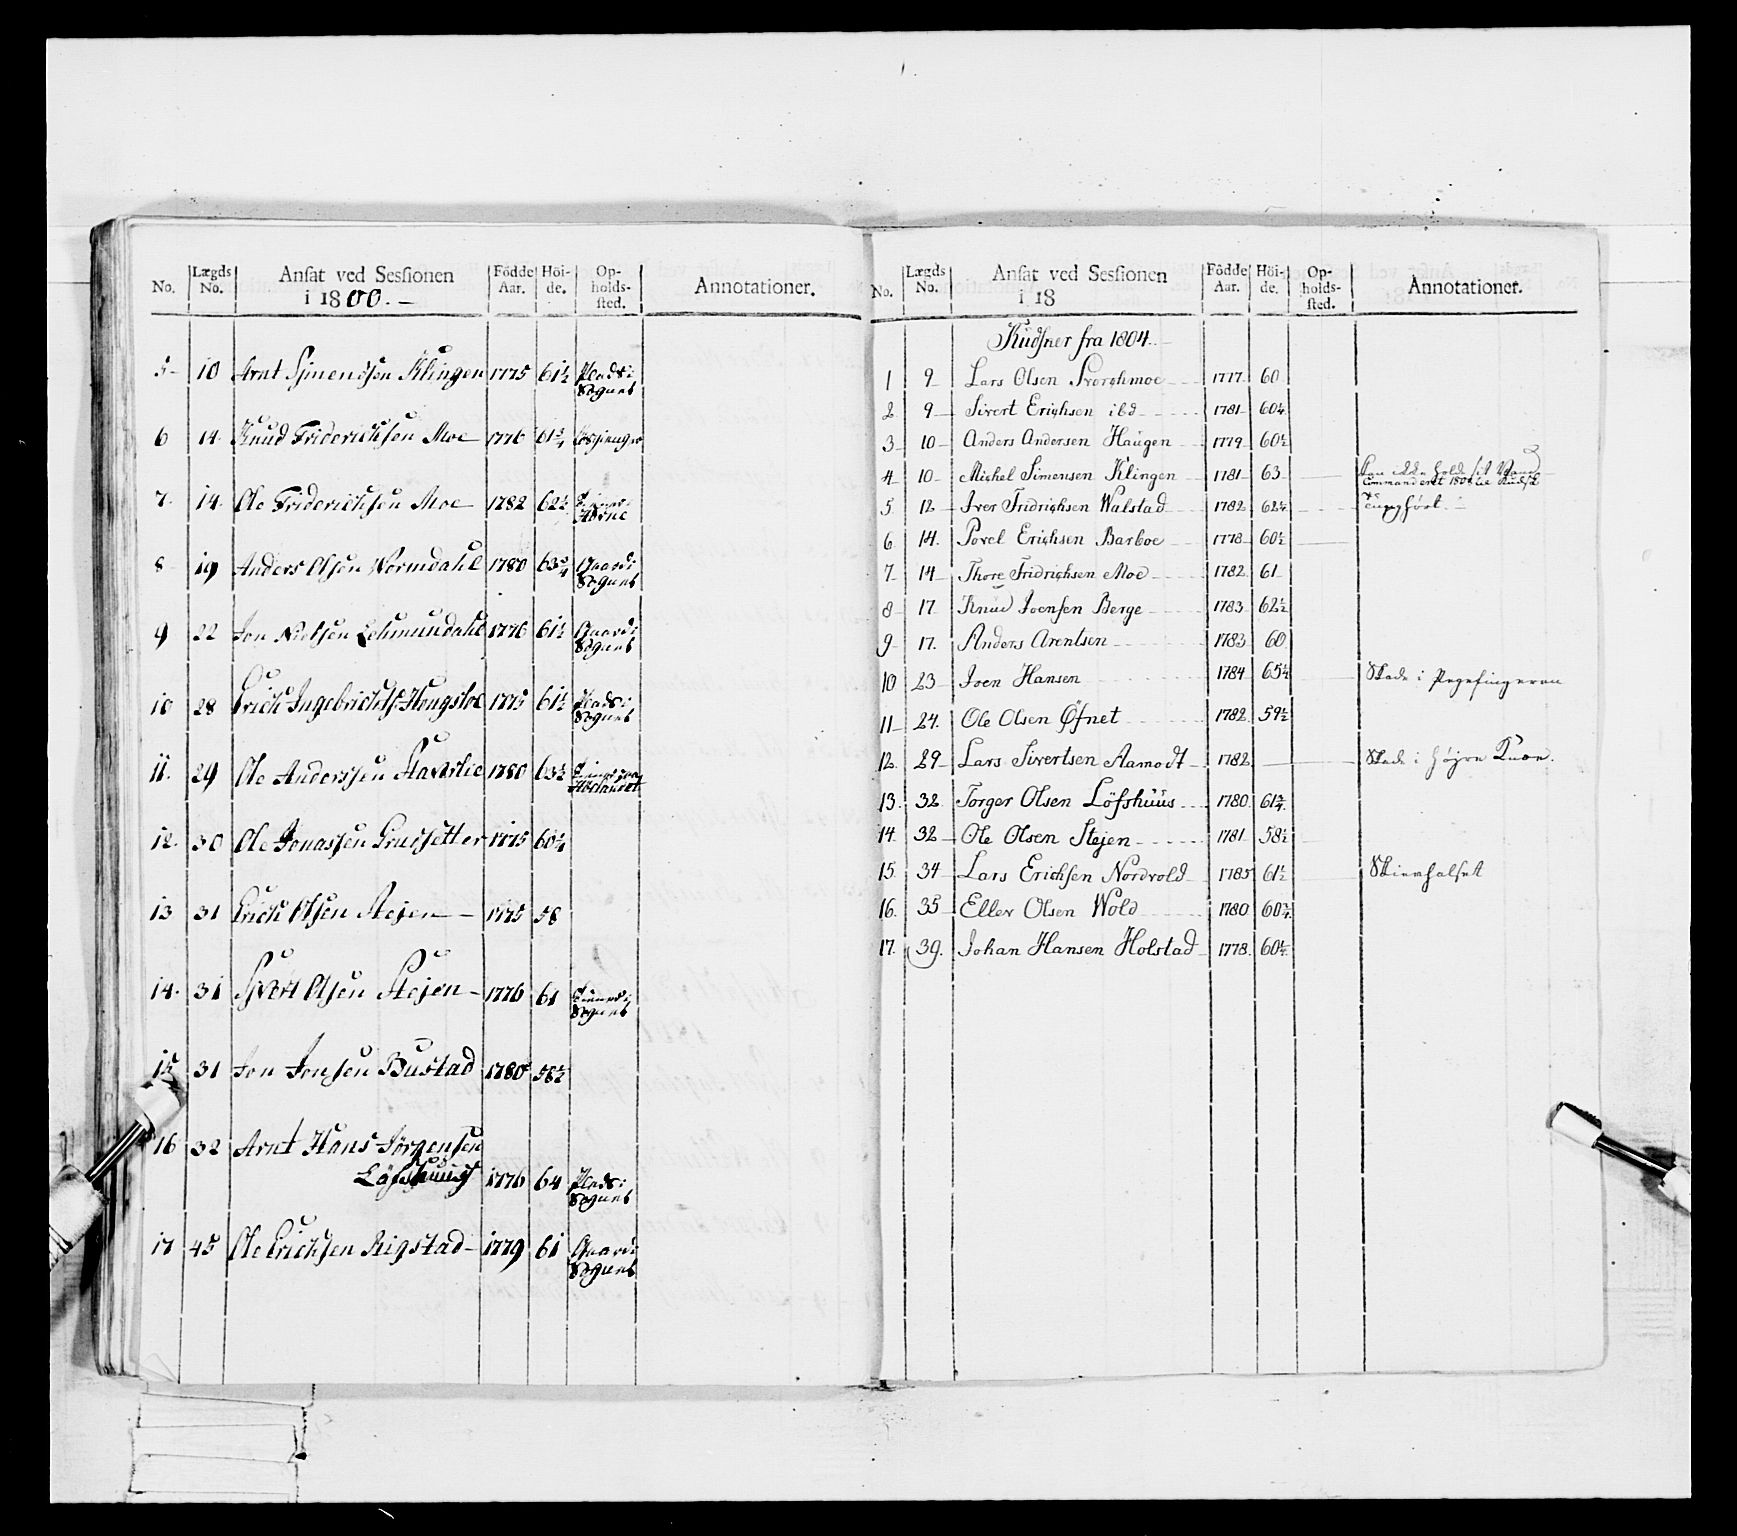 No. Lægds No. Ansat ved Sessionen i 1800. Födde Aar. Höide. Opholdssted. Annotationer.
5 10 Arnt Sjmensen Klingen 1775 61½ Plads i Sognet
6 14 Knud Friderichsen Moe 1776 61¾
7 14 Ole Friderichsen Moe 1782 62½
8 19 Anders Olsen Wormdahl 1780 63¾ Gaard i Sognet
9 22 Jon Nielsen 1776 61½ Gaard i Sognet
10 28 Erich Ingebrichts: 1775 61½ Plads i Sognet
11 29 Ole Anderssen 1780 63½
12 30 Ole Jonassen 1775 60½
13 31 Erich Olsen Stejen 1775 58
14 31 Sjvert Olsen Stejen 1776 61 Sognet
15 31 Jon Jonsen Bustad 1780 58½
16 32 Arnt Hans Jörgensen
Löfshuus 1776 64 Plads i Sognet
17 45 Ole Erichsen Rigstad 1779 61 Gaard i Sognet
No. Lægds No. Ansat ved Sessionen i 18 Födde Aar. Höide. Opholdssted. Annotationer.
Kudsner fra 1804.
1 9 Lars Olsen Svorchmoe 1777 60
2 9 Sivert Erichsen ibd 1781 60¼
3 10 Anders Andersen Haugen 1779 60½
4 10 Michel Simensen Klingen 1781 63 Kan ikke holde sit Vand
5 12 Iver Fridrichsen Walstad 1782 62¼
6 14. Povel Erichsen Barboe 1778 60½
7 14 Thore Fridrichsen Moe 1782 61
8 17 Knud Joensen Berge 1783 62½
9 17. Anders Arentsen 1783 60
10 23 Joen Hansen 1784 65¼ Skade i Pegefingeren
11 24. Ole Olsen Øfnet 1782 59½
12. 29 Lars Sivertsen Aamodt 1782 Skade i højre Knæe.
13. 32 Torger Olsen Löfshuus 1780 61¾
14 32 Ole Olsen Stejen 1781 58½
15. 34 Lars Erichsen Nordvold 1785 61½ Skievhalset
16. 35 Eller Olsen Wold 1780 60¾
17. 39. Johan Hansen Holstad 1778 60½